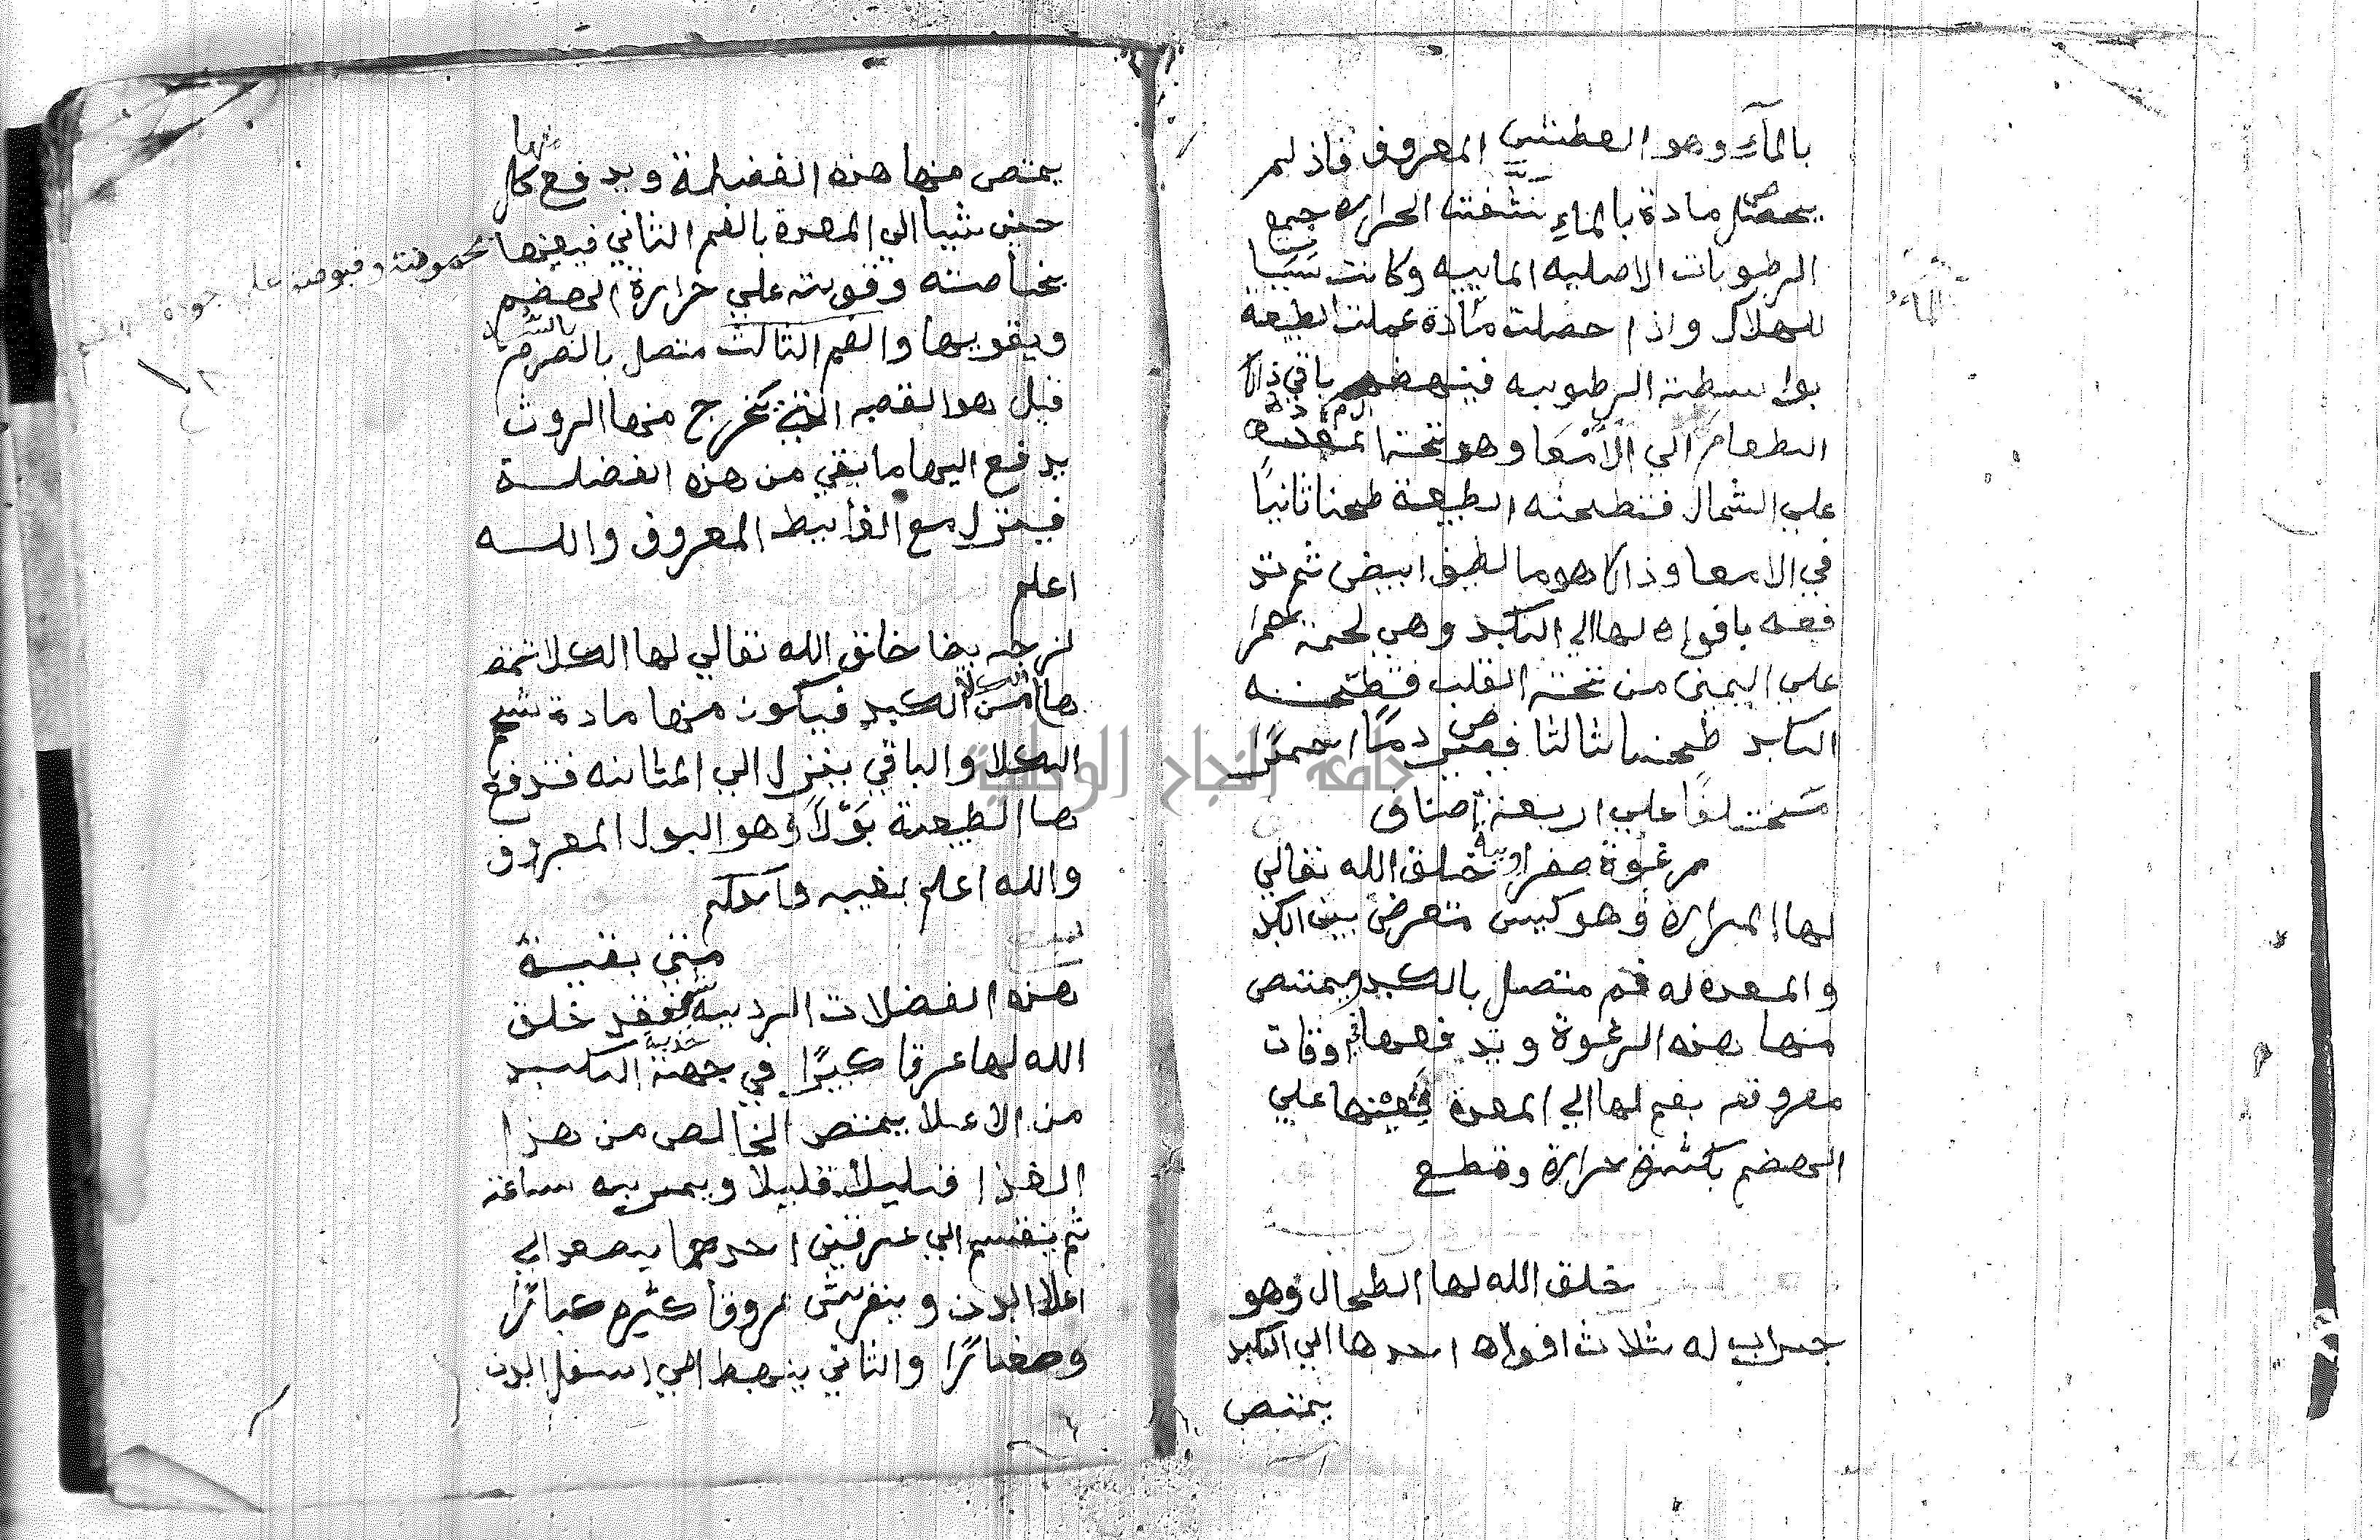 بالمآءِ وهو العطش المعروف فاذ لم
يحصل مادة بالماءِ نشفت الحراره جميع
الرطوبات الاصليه المائيه وكانت سببا
للهلاك واذا حصلت مادة عملت الطبيعه
بواسطة الرطوبه فينهضم باقي ذلك
الطعام الي الأمعا وهو تحت المعده
علي الشمال فتطحنه الطبيعة طحنا ثانيًا
في الامعا وذلك هو ما لطيف ابيض ثم تد
فعه بافواه لها الي الكبد وهي لحمة حمرا
علي اليمنى من تحت القلب فتطحنه
الكبد طحنا ثالثا فيصير دمًا احمرًا
مختلفا علي اربعة اصناف
رغوة صفراوية خلق الله تعالي
لها المرارة وهو كيس متعرض بين الكبد
والمعده له فم متصل بالكبد ويمتص
منها هذه الرغوة ويدفعها في اوقات
معروفه بفم لها الي المعدة فيعينها علي
الهضم بكثرة حرارة وقطع
خلق الله لها الطحال وهو
جراب له ثلاث افواه احدها الي الكبد
يمتص
يمتص منها هذه الفضلة ويدفع كل
منها
حين شيأ الي المعدة بالفم الثاني فيعينها
بحموضته وقبوضته علي جودة الهضم
بخاصته وقويته علي حرارة الهضم
ويقويها والفم الثالث متصل بالصرم
قيل هو القصبه التي تخرج منها الروث
يدفع اليها ما بقي من هذه الفضلة
فينزل مع الغايط المعروف والله
اعلم
لزجه بيضا خلق الله تعالي لها الكلا تمتصـ
ها من الكبد فيكون منها مادة شحم
الكلا والباقي ينزل الي المثانه فتدفع
ها الطبيعة بَوْلاً وهو البول المعروف
والله اعلم بغيبه واحكم
متي بقية
هذه الفضلات الرديه فقد خلق
الله لها عرقا كبيرًا في جهة الكبد
حدبة
من الاعلا يمتص الخالص من هذا
الغذا قليلا قليلا ويمر به ساعة
ثم ينقسم الي عرقين احدهما يصعد الي
اعلا البدن وينفرش عروقا كثيره كبارًا
وصغارًا والثاني ينهبط الي اسفل البدن
جامعة النجاح الوطنية